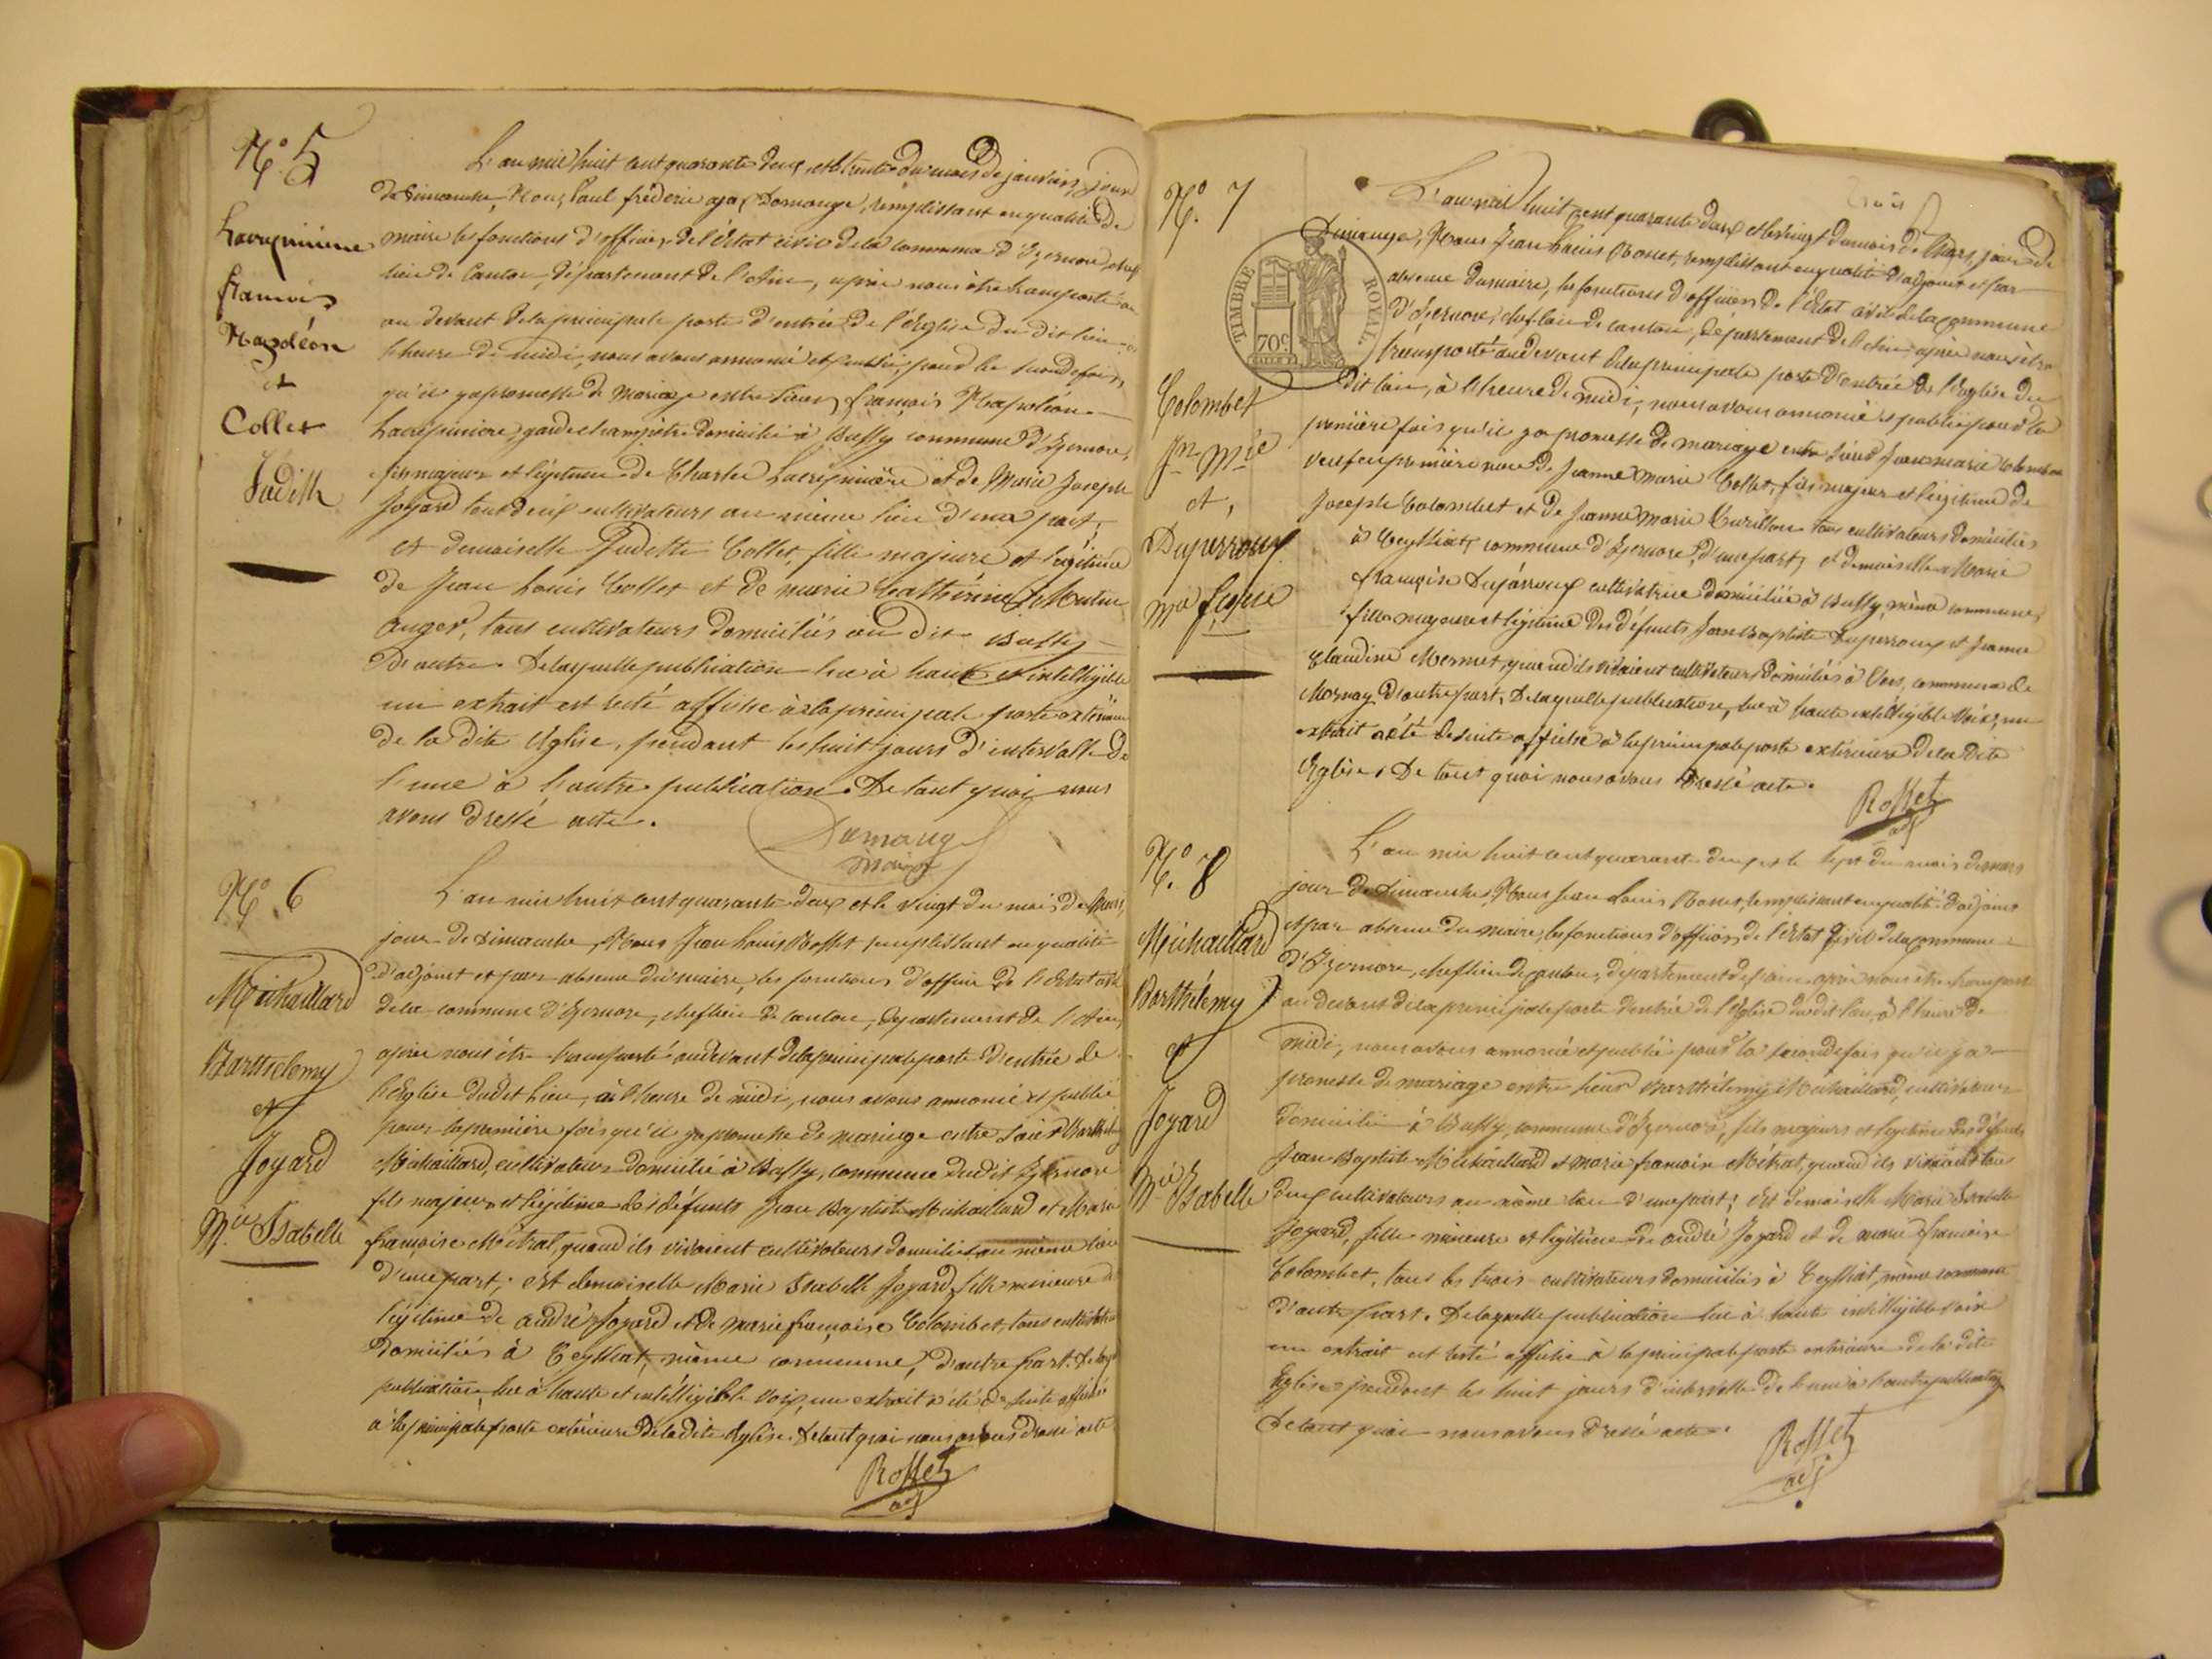 N.° 5
Lacrépinière
francois
Napoléon
et
Collet
Judith
L'an mil huit cent quarante deux et le trente du mois de janvier, jour
de dimanche, Nous Paul fréderic ajax Domange, remplissant en qualité de
maire les fonctions d'officier de l'état civil de la commune d'Izernore, chef
lieu de Canton, département de l'Ain, après nous être transporté
au devant de la principale porte d'entrée de l'Eglise du dit lieu à
l'heure de midi, nous avons annoncé et publié pour la seconde fois,
qu'il y a promesse de mariage entre sieur françois Napoléon
Lacrépinière, garde champêtre domicilié à Bussy commune d'Izernore,
fils majeur et légitime de Charles Lacrépinière et de Marie Joseph
Joyard tout deux cultivateurs au même lieu d'une part,
et demoiselle Judette Collet, fille majeure et légitime
de Jean Louis Collet et de marie Catherine
anger, tous cultivateurs domiciliés au dit Bussy
d'autre. De laquelle publication lue à haute et intelligible
un extrait est resté affiché à la principale porte extérieure
de la dite Eglise, pendant les huit jours d'intervalle de
l'une à l'autre publication. De tout quoi nous
avons dressé acte.
Domange
maire
N.° 6
Michaillard
Barthelemy
et
Joyard
Mie Isabelle
L'an mil huit cent quarante deux et le vingt du mois de Mars,
jour de dimanche, Nous Jean Louis Rosset remplissant en qualité
d'adjoint et par absence du maire, les fonctions d'officier de l'Etat civil
de la commune d'Izernore, chef lieu de canton, Département de l'Ain,
après nous être transporté au devant de la principale porte d'entrée de
l'Eglise dudit lieu, à l'heure de midi, nous avons annoncé et publié
pour la première fois qu'il y a promesse de mariage entre sieur Barthélemy
Michaillard, cultivateur domicilié à Bussy, commune dudit Izernore
fils majeur et légitime des défunts Jean Baptiste Michaillard et Marie
françoise Métral, quand ils vivaient cultivateurs domiciliés au même lieu
d'une part; et demoiselle Marie Isabelle Joyard fille mineure et
légitime de andré Joyard et de marie françoise Colombet, tous cultivateurs
domiciliés à Ceyssiat, même commune, d'autre part. De laquelle
publication, lue à haute et intelligible voix, un extrait a été de suite affiché
à la principale porte extérieure de la dite Eglise. De tout quoi nous avons dressé acte
Rosset
adj
trois
N.° 7
TIMBRE ROYAL
70c
Colombet
Jn Mie
et,
Duperroux
Mie fçoise
L'an mil huit cent quarante deux et le vingt du mois de Mars, jour de
Dimange, Nous Jean Louis Rosset, remplissant en qualité d'adjoint et par
absence du maire, les fonctions d'officier de l'Etat civil de la commune
d'Izernore, chef lieu de canton, Département de l'Ain, après nous être
transporté au devant de la principale porte d'entrée de l'Eglise du
dit lieu, à l'heure de midi, nous avons annoncé et publié pour la
première fois qu'il y a promesse de mariage entre sieur Jean marie Colombet
veuf en première noce de Jeanne Marie Collet, fils majeur et légitime de
Joseph Colombet et de Jeanne Marie Curillon tous cultivateurs domiciliés
à Ceyssiat, commune d'Izernore, d'une part, et demoiselle Marie
françoise Duperroux cultivatrice domiciliée à Bussy, même commune,
fille majeure et légitime des défunts Jean Baptiste Duperroux et Jeanne
Claudine Mermet, quand ils vivaient cultivateurs domiciliés à Vers, commune de
Mornay d'autre part. De laquelle publication, lue à haute intelligible voix, un
extrait a été de suite affiché à la principale porte extérieure de la dite
Eglise. De tout quoi nous avons dressé acte.
Rosset
adj
N.° 8
Michaillard
Barthélemy
et
Joyard
Mie Isabelle
L'an mil huit cent quarante deux et le sept du mois de mars
jour de dimanche, Nous Jean Louis Rosset, remplissant en qualité d'adjoint
et par absence du maire, les fonctions d'officier de l'Etat Civil de la commune
d'Izernore, chef lieu de canton, département de l'ain après nous être transporté
au devant de la principale porte d'entrée de l'Eglise du dit lieu, à l'heure de
midi, nous avons annoncé et publié pour la seconde fois qu'il y a
promesse de mariage entre sieur Barthélemy Michaillard, cultivateur
domicilié à Bussy, commune d'Izernore, fils majeur et légitime des défunts
Jean Baptiste Michaillard et Marie francoise Métral, quand ils vivaient tous
deux cultivateurs au même lieu d'une part; et demoiselle Marie Isabelle
Joyard, fille mineure et légitime de andré Joyard et de marie francoise
Colombet, tous les trois cultivateurs domiciliés à Ceyssiat, même commune
d'autre part. De laquelle publication lue à haute intelligible voix
un extrait est resté affiché à la principale porte extérieure de la dite
Eglise pendant les huit jours d'intervalle de l'une à l'autre publication
De tout quoi nous avons dressé acte.
Rosset
adj